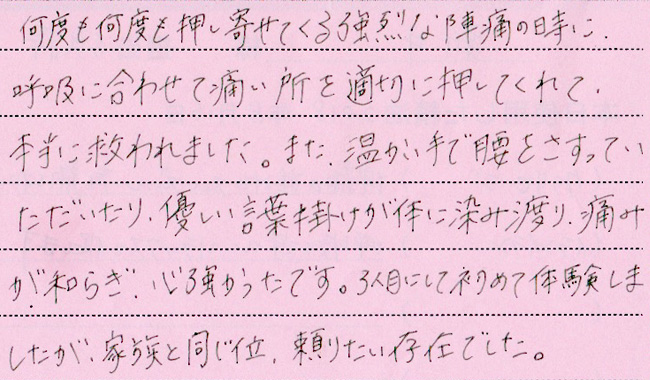 何度も何度も押し寄せてくる強烈な陣痛の時に、
呼吸に合わせて痛い所を適切に押してくれて、
本当に救われました。また、温かい手で腰をさすってい
ただいたり、優しい言葉掛けが体に染み渡り、痛み
が、和らぎ、心強かったです。3人目にして初めて体験しま
したが、家族と同じ位、頼りたい存在でした。